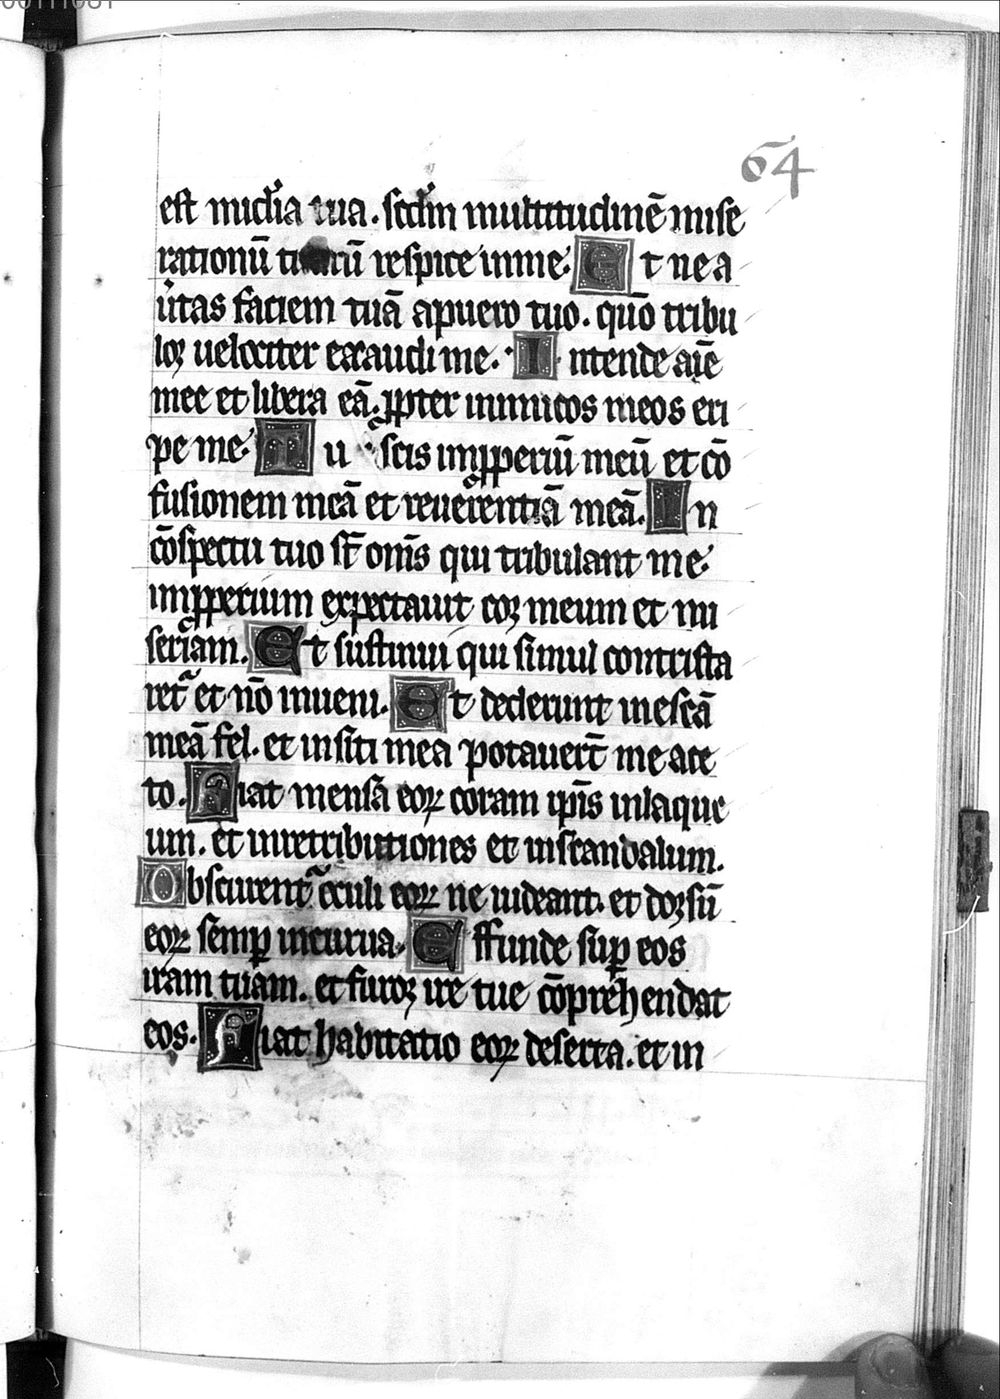 00111081
64
est mịa tua. scdm multitudinē mise
rationū tuarū respice in me. Et ne a
u̾tas faciem tuā a puero tuo. quō tribu
lor uelociter exaudi me. Intende aīe
mee et libera eā. ꝓpter inimicos meos eri
pe me. Tu scis imꝓperiū meū et cō
fusionem meā et reuerentiā meā. In
cōspectu tuo st̄ om̄s qui tribulant me.
imꝓperium expectauit cor meum et mi
seriam. Et sustinui qui simul contrista
ret᷑ et nō inueni. Et dederunt in escā
meā fel. et in siti mea potauert̄ me ace
to. Fiat mensa eoꝝ coram ip̄is in laque
um. et in retributiones et in scandalum.
Obscurent᷑ oculi eoꝝ ne uideant. et dorsū
eoꝝ semꝑ incurua. Effunde suꝑ eos
iram tuam. et furor ire tue cōprehendat
eos. Fiat habitatio eoꝝ deserta. et in